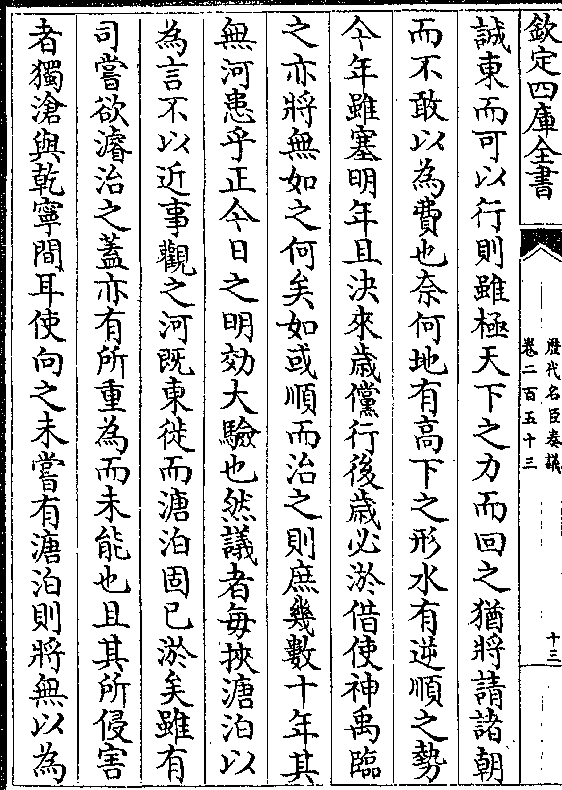 欽定四庫全書
歷代名臣奏議
卷二百五十三
十三
誠東而可以行則雖極天下之力而回之猶將請諸朝
而不敢以為費也奈何地有高下之形水有逆順之勢
今年雖塞明年且決來歲儻行後歲必淤借使神禹臨
之亦將無如之何矣如或順而治之則庶幾數十年其
無河患乎正今日之明効大驗也然議者每挾溏泊以
為言不以近事觀之河既東徙而溏泊固已淤矣雖有
司嘗欲濬治之蓋亦有所重為而未能也且其所侵害
者獨滄與乾寧間耳使向之未嘗有溏泊則將無以為